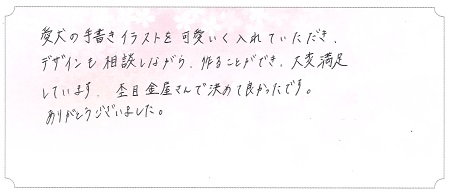 愛犬の手書きイラストを可愛いく入れていただき、
デザインも相談しながら、作ることができ、大変満足
しています。杢目金屋さんで決めて良かったです。
ありがとうございました。